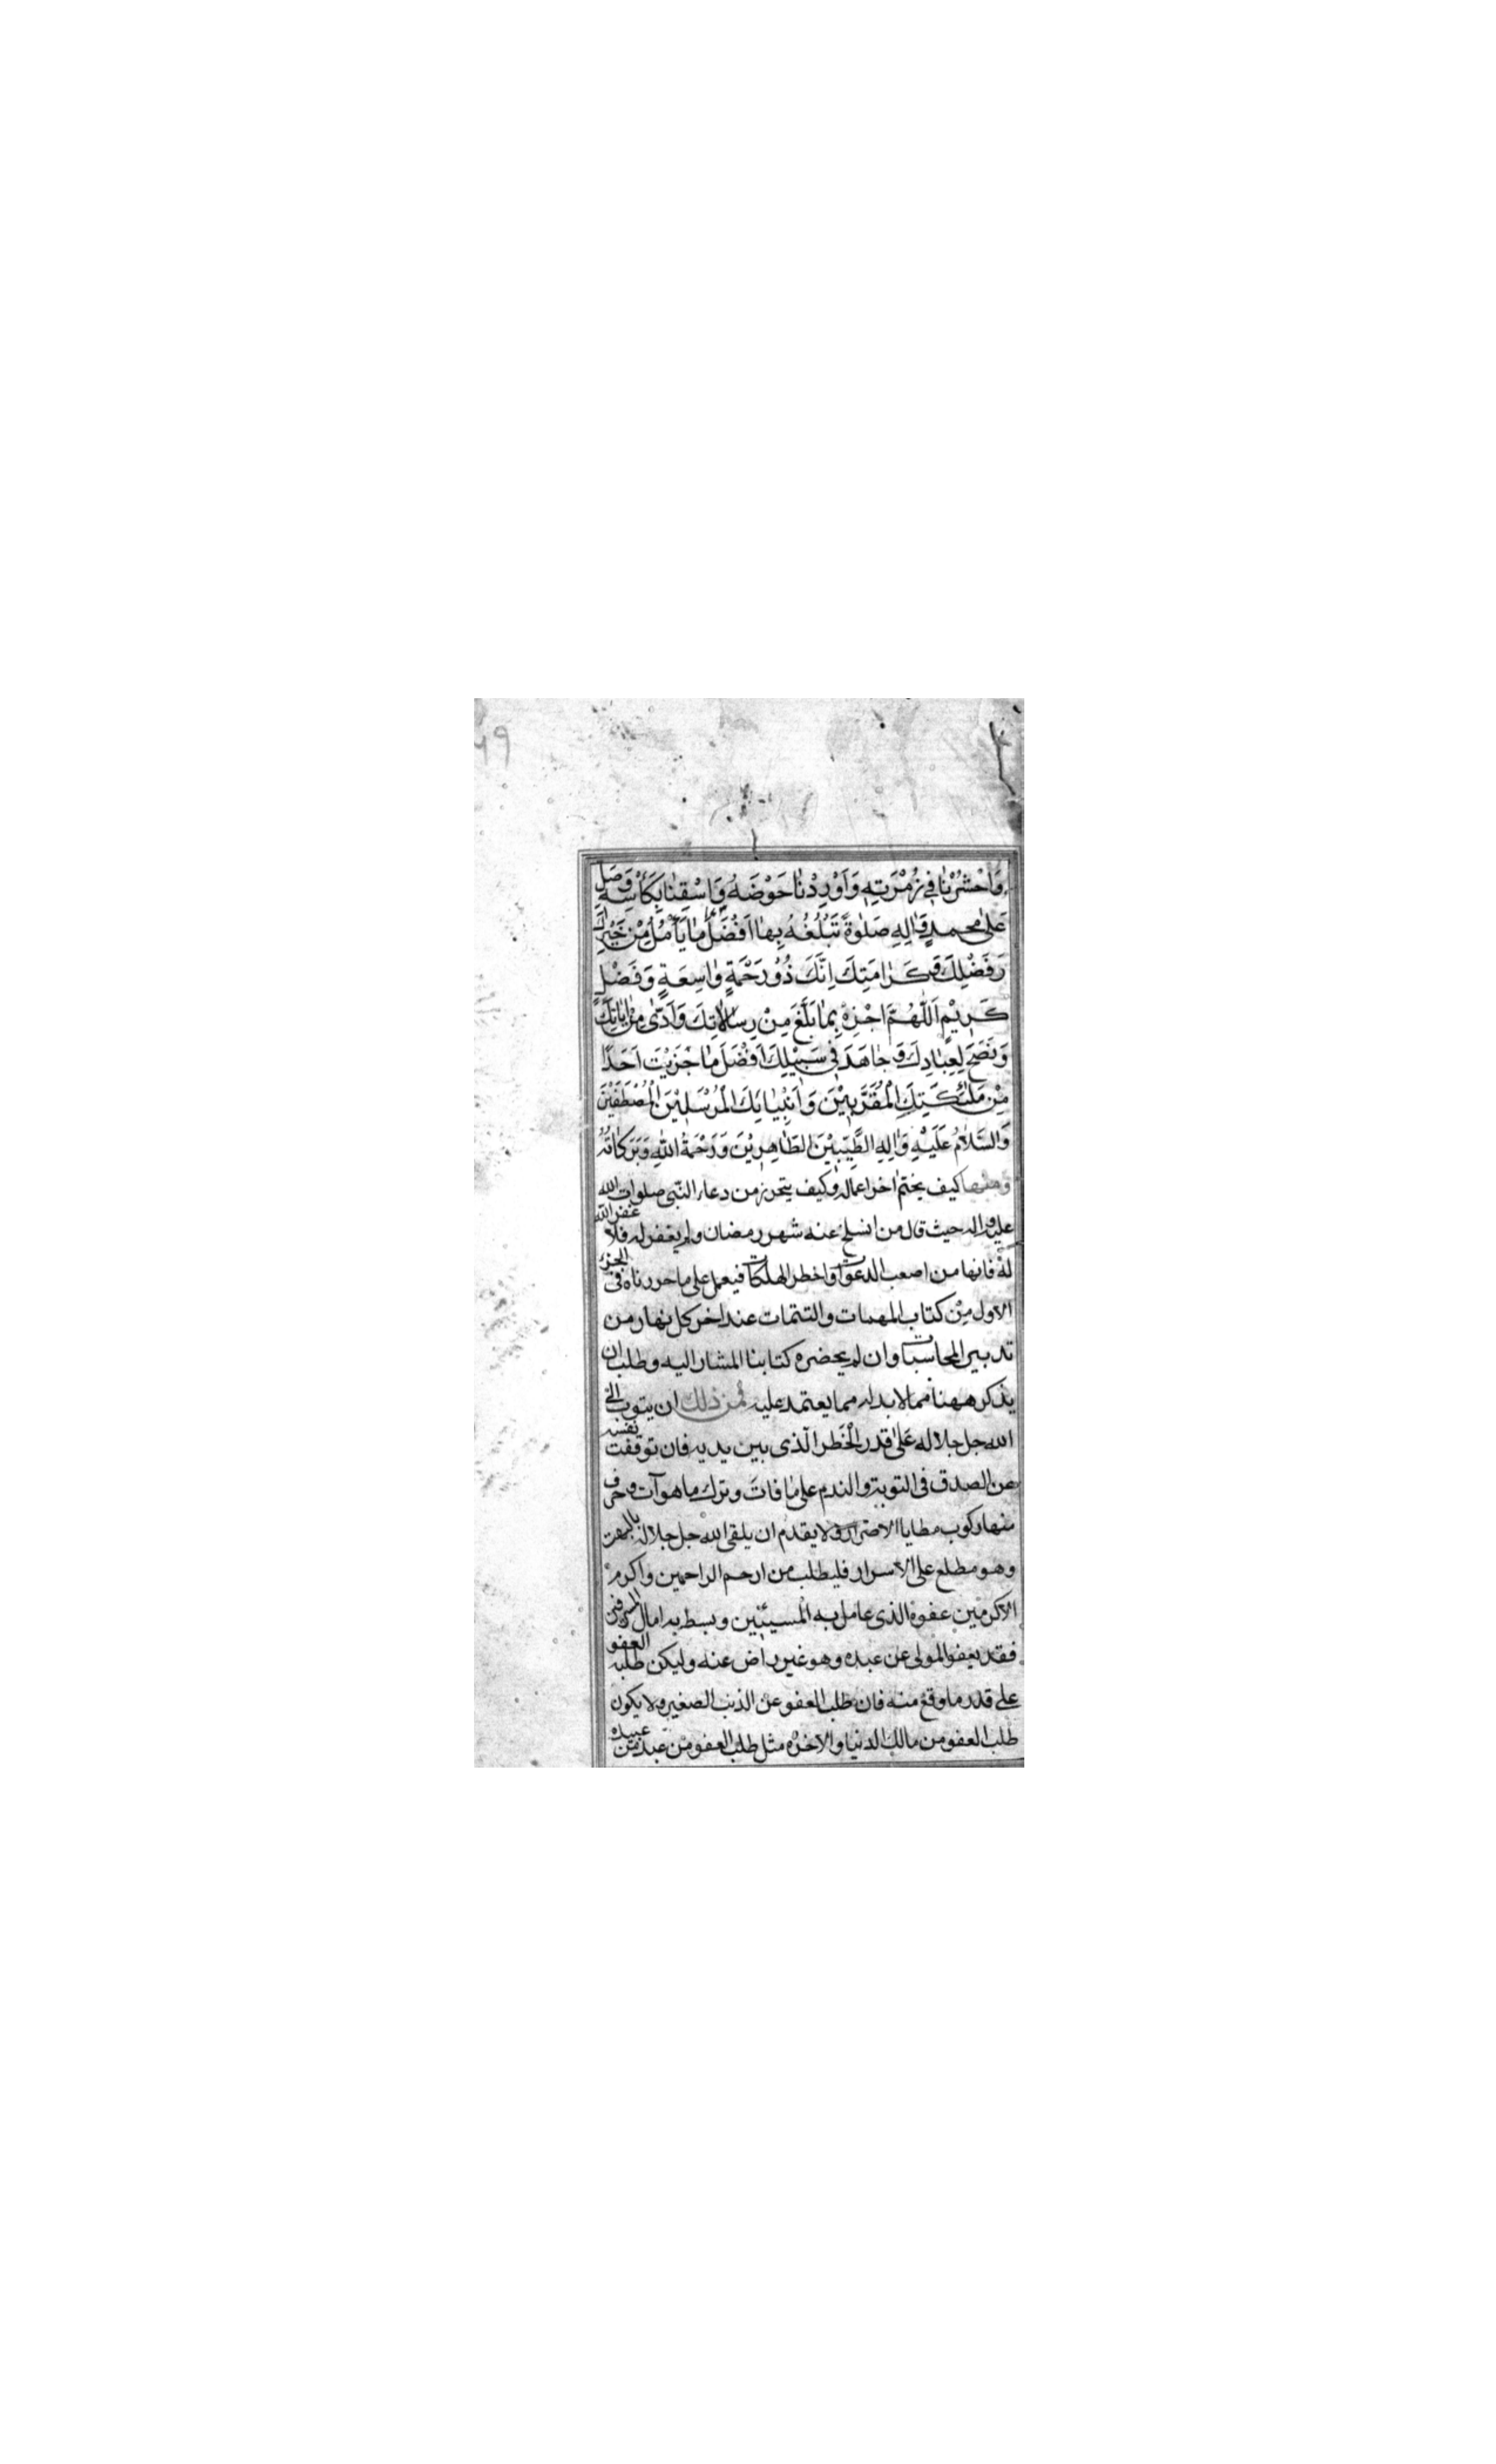 وَاحْشُرْنٰا فِي زُمْرَتِهِ وَاَوْرِدْنٰا حَوْضَهُ وَاسْقِنٰا بِكَأْسِهِ وَصَلِّ
عَلىٰ محمدٍ وَاٰلِهِ صَلٰوةً تُبَلِّغُهُ بِهٰا اَفْضَلَ مٰا يَأْمُلُ مِنْ خَيْرِكَ
وَفَضْلِكَ وَكَرٰامَتِكَ اِنَّكَ ذُو رَحْمَةٍ وٰاسِعَةٍ وَفَضْلٍ
كَرِيْمٍ اَللّٰهُمَّ اجْزِهِ بِمٰا بَلَّغَ مِنْ رِسٰالٰاتِكَ وَاَدّٰى مِنْ اٰيٰاتِكَ
وَنَصَحَ لِعِبٰادِكَ وَجٰاهَدَ فِي سَبِيْلِكَ اَفْضَلَ مٰا جَزَيْتَ اَحَدًا
مِنْ مَلٰئِكَتِكَ الْمُقَرَّبِيْنَ وَاَنْبِيٰائِكَ الْمُرْسَلِيْنَ الْمُصْطَفَيْنَ
وَالسَّلٰامُ عَلَيْهِ وَاٰلِهِ الطَّيِّبِيْنَ الطّٰاهِرِيْنَ وَرَحْمَةُ اللهِ وَبَرَكٰاتُهُ
ومنها كيف يختم اخر اعماله وكيف يتحرز من دعاء النّبى صلوات الله
عليه واله حيث قال من انسلخ عنه شهر رمضان ولم يغفر له فلا غفر الله
له فانها من اصعب الدعوات واخطر الهلكات فيعمل على ما حررناه فى الجزء
الاول مِنْ كتاب المهمات والتتمات عند اخر كل نهار من
تدبير المحاسبات وان لم يحضره كتابنا المشار اليه وطلب ان
يذكر ههنا مما لا بد له مما يعتمد عليه فمن ذلك ان يتوب الى
الله جل جلاله عَلىٰ قدر الخَطَر الّذى بين يديه فان توقفت نفسه
عن الصدق فى التوبة والندم على مٰا فاتَ وترك ما هو آت وحرف
منها ركوب مطايا الاصرار ولا يقدم ان يلقى الله جل جلاله
وهو مطلع على الاسرار فليطلب من ارحم الراحمين واكرم
الاكرمين عفوه الذى عامل به المسيئين وبسط به امال المسرفين
فقد يعفو المولى عن عبده وهو غير راض عنه وليكن طلبه العفو
على قدر ما وقع منه فان طلب العفو عن الذنب الصغير ولا يكون
طلب العفو من مالك الدنيا والاخرة مثل طلب العفو من عبد من عبيده